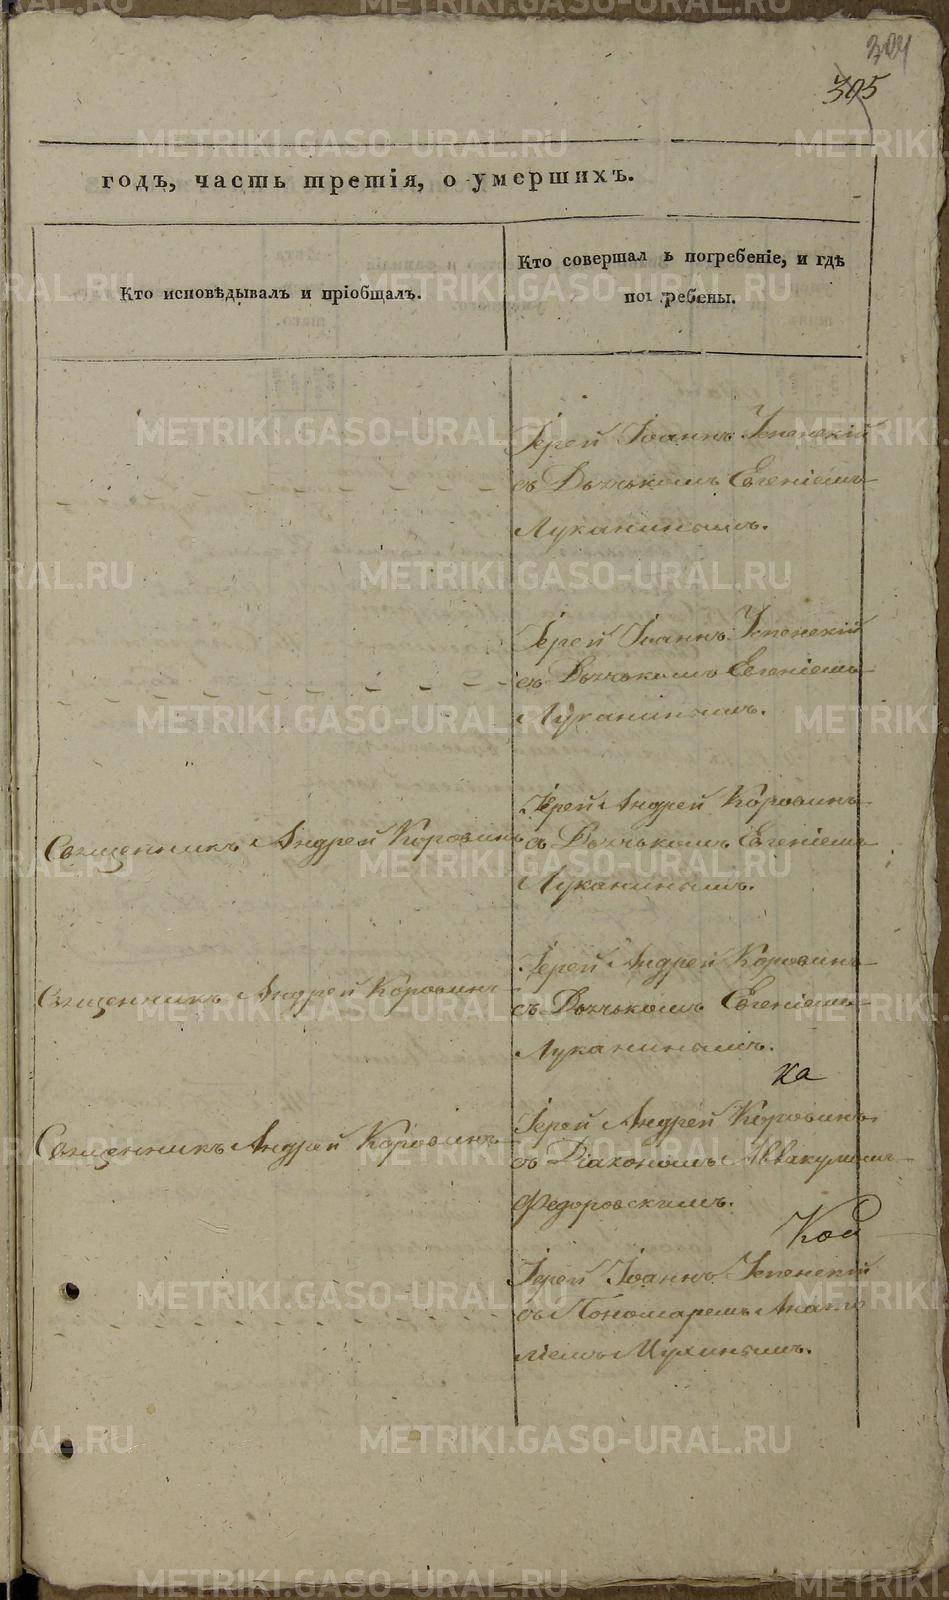 304
305
годъ, часть третія, о умершихъ.
Кто исповѣдывалъ и пріобщалъ.
Кто совершалъ погребеніе, и гдѣ
погребены.
Іерей Іоаннъ Успенскій
съ Дьячькомъ Евгеніемъ
Луканинымъ.
Іерей Іоаннъ Успенскій
съ Дьячькомъ Евгеніемъ
Луканинымъ.
Священникъ Андрей Коровинъ
Іерей Андрей Коровинъ
съ Дьячькомъ Евгеніемъ
Луканинымъ.
Священникъ Андрей Коровинъ
Іерей Андрей Коровинъ
съ Дьячькомъ Евгеніемъ
Луканинымъ.
ка
Священникъ Андрей Коровинъ
Іерей Андрей Коровинъ
съ Діакономъ Аввакумомъ
Федоровскимъ.
Іерей Іоаннъ Успенскій
съ Пономаремъ Анато
ліемъ Мухинымъ.
METRIKI.GASO-URAL.RU